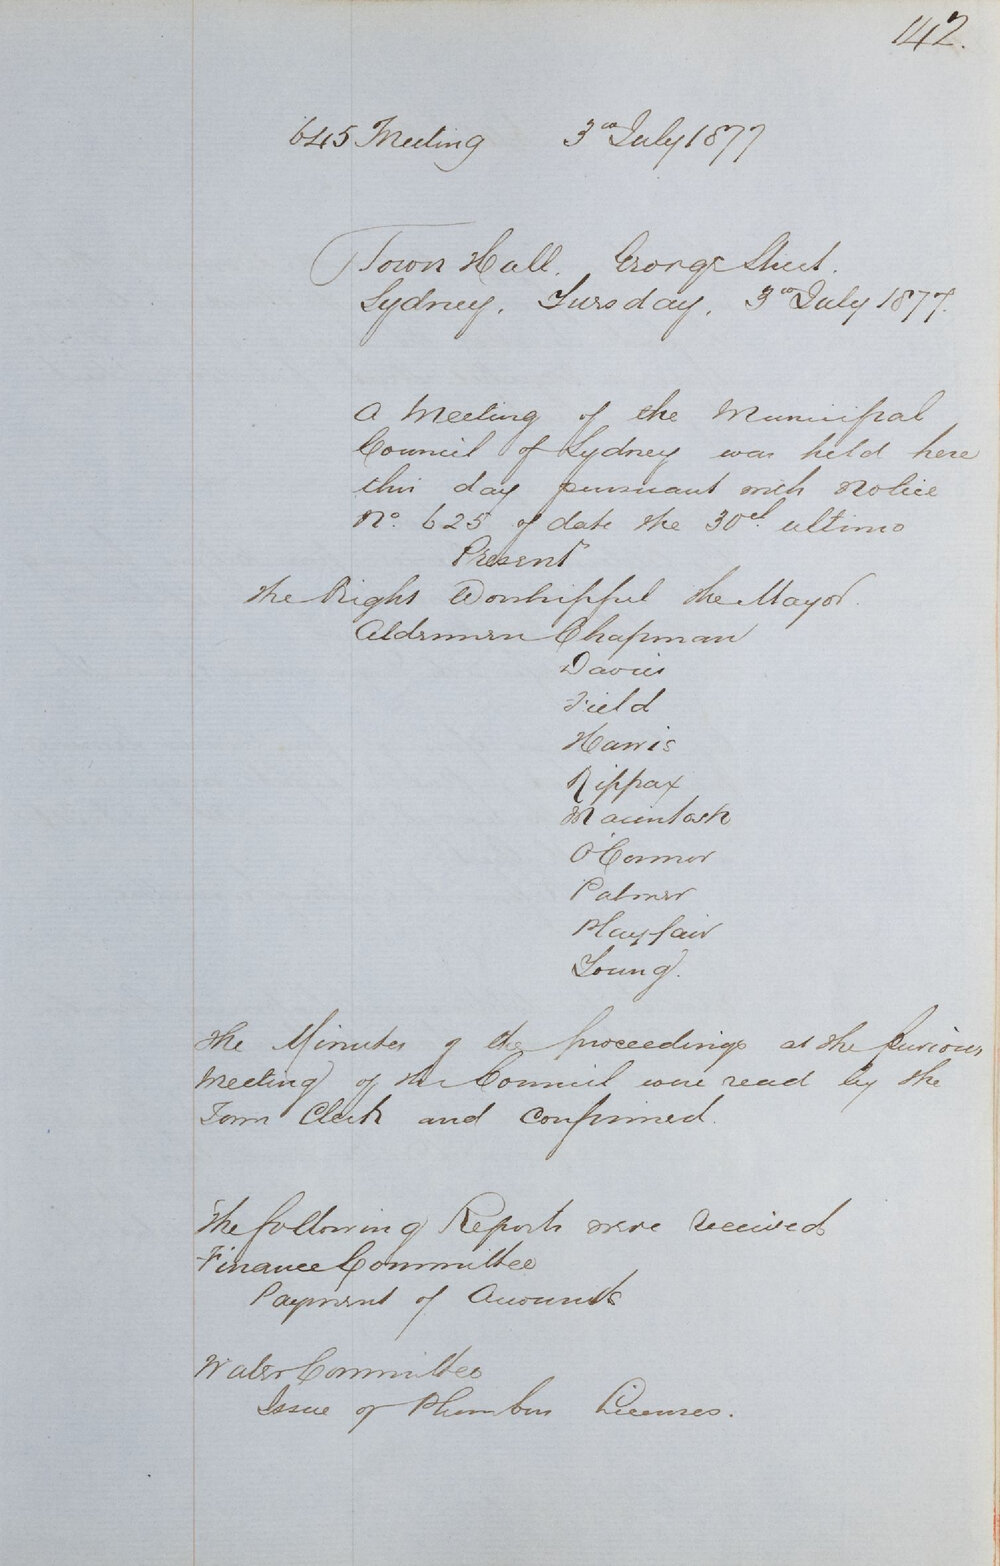 142.
645 Meeting 3rd July 1877
Town Hall. George Street.
Sydney. Tuesday. 3rd July 1877.
A Meeting of the Municipal
Council of Sydney was held here
this day pursuant with Notice
No. 625 of date the 30th ultimo
Present
The Right Worshipful the Mayor.
Aldermen Chapman
Davies
Field
Harris
Kippax
Macintosh
O'Connor
Palmer
Playfair
Young.
The Minutes of the proceedings at the previous
Meeting of the Council were read by the
Town Clerk and confirmed.
The following Reports were received
Finance Committee
Payment of Accounts
Water Committee
Issue of Plumbers Licenses.